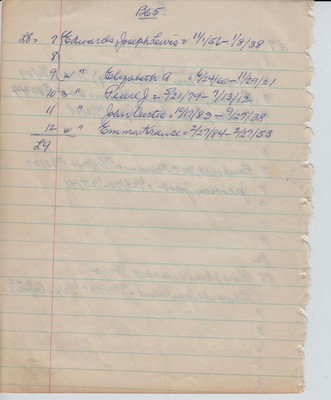 1365
L8 = 7 Edwards Joseph Lewis = 11/1/56 - 1/8/38
8
9 w " Elizabeth A = 9/24/60 - 11/29/21
10 s " Pearl I = 5/21/79 - 7/13/12
11 " John Curtis = 10/17/83 - 9/27/38
12 w " Emma Krause = 2/27/84 - 2/27/53
L9